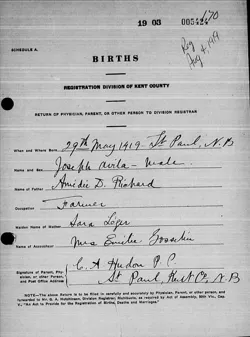 19 03 005424
170
Reg
Aug 4, 1919
SCHEDULE A.
BIRTHS
REGISTRATION DIVISION OF KENT COUNTY
RETURN OF PHYSICIAN, PARENT, OR OTHER PERSON TO DIVISION REGISTRAR
When and Where Born 29th May 1919 St Paul, N.B
Name and Sex Joseph Avila - Male
Name of Father Amédie D. Richard
Occupation Farmer
Maiden Name of Mother Sara Leger
Name of Accoucheur Mrs Emilie
Signature of Parent, Physician, or other Person and Post Office Address C. A. Hudon P.P.
St Paul, Kent Co, N.B
NOTE—The above Return is to be filled in carefully and accurately by Physician, Parent, or other person, and
forwarded to Mr. R. A. Hutchinson, Division Registrar, Richibucto, as required by Act of Assembly, 50th Vic., Cap.
V., "An Act to Provide for the Registration of Births, Deaths and Marriages."